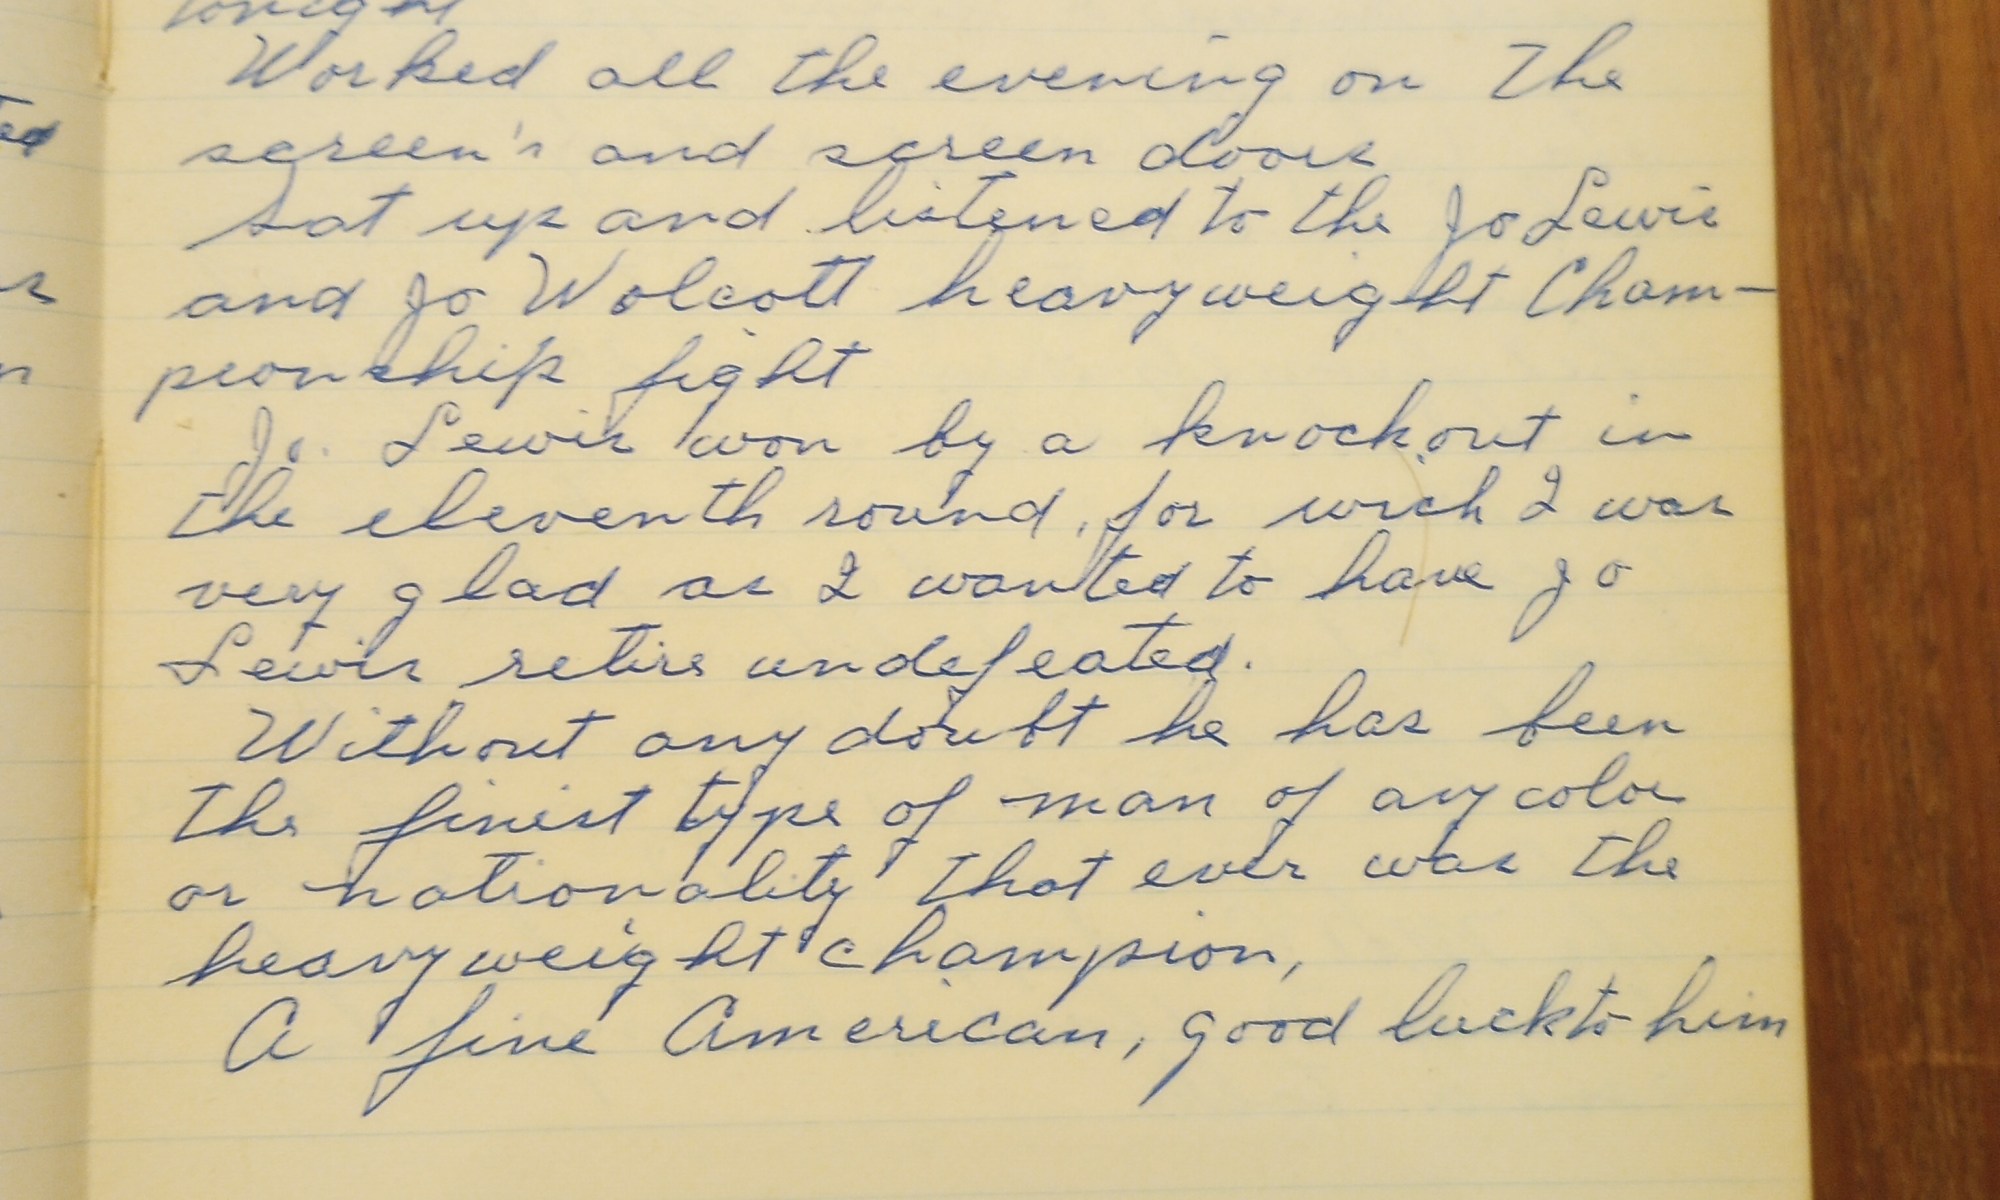 tonight
Worked all the evening on the
screen's and screen doors
Sat up and listened to the Jo Lewis
and Jo Wolcott heavyweight Cham-
pionship fight
Jo. Lewis won by a knockout in
the eleventh round, for wich I was
very glad as I wanted to have Jo
Lewis retire undefeated.
Without any doubt he has been
the finest type of man of any color
or nationality that ever was the
heavyweight champion,
A fine American, good luck to him